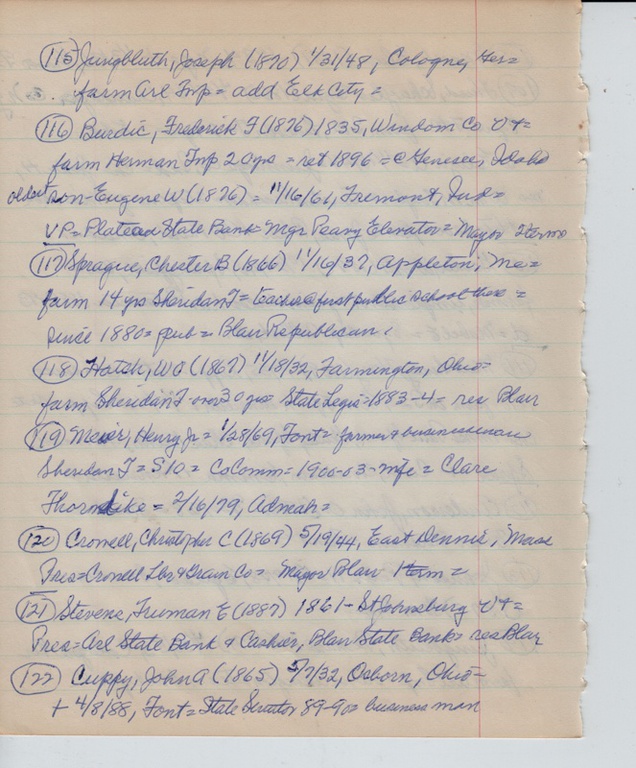 (115) Jungbluth, Joseph (1870) 1/31/48, Cologne, Ger=
farm Arl Tnp = add Elk City =
(116) Burdic, Frederick F (1876) 1835, Windom Co Vt =
farm Herman Tnp 20 yrs = ret 1896 = @ Genesee, Idaho
oldest son - Eugene W (1876) = 11/16/61, Fremont, Ind =
VP = Plateau State Bank = Mgr Peavy Elevator = Mayor 2 terms
(117) Sprague, Chester B (1866) 11/16/37, Appleton, Me =
farm 14 yrs Sheridan T = teacher @ first public school there =
since 1880 = pub = Blair Republican
(118) Hatch, WO (1867) 11/18/32, Farmington, Ohio =
farm Sheridan T - over 30 yrs State Legis - 1883-4 = res Blair
(119) Meier, Henry Jr = 1/28/69, Font = farmer & businessman
Sheridan T = S10 = CoComm = 1900-03 - mfe = Clare
Thorndike = 2/16/79, Admah =
(120) Crowell, Christopher C (1869) 5/19/44, East Dennis, Mass
Pres = Crowell Lbr & Grain Co = Mayor Blair 1 term =
(121) Stevens, Truman E (1887) 1861 + St Johnsburg Vt =
Pres = Arl State Bank & Cashier, Blair State Bank = res Blair
(122) Cuppy, John A (1865) 5/7/32, Osborn, Ohio -
+ 4/8/88, Font = State Senator 89-90 = business man